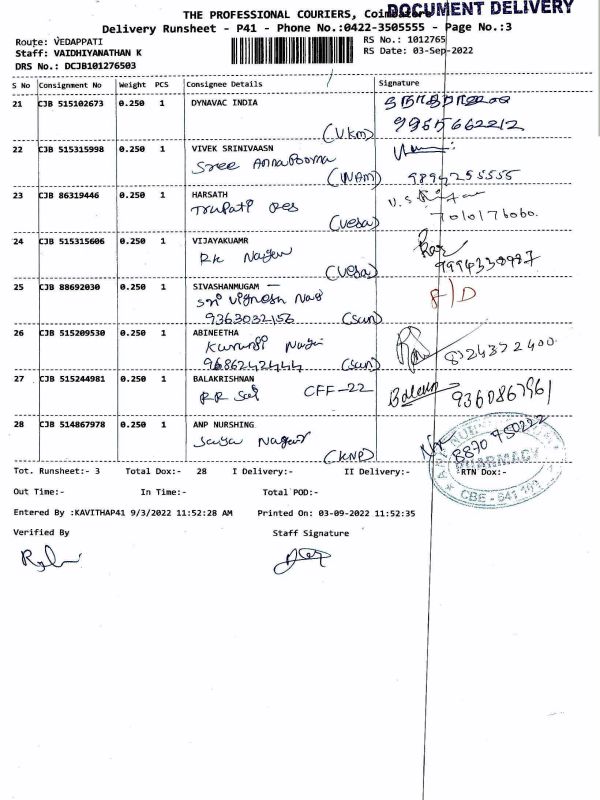 DOCUMENT DELIVERY
THE PROFESSIONAL COURIERS, Coimbatore
Delivery Runsheet - P41 - Phone No.:0422-3505555 - Page No.:3
Route: VEDAPPATI
RS No.: 1012765
Staff: VAIDHIYANATHAN K
RS Date: 03-Sep-2022
DRS No.: DCJB101276503
S No Consignment No Weight PCS Consignee Details Signature
21 CJB 515102673 0.250 1 DYNAVAC INDIA
9965662212
(Vkm)
22 CJB 515315998 0.250 1 VIVEK SRINIVAASN
Sree Annapoorna
(WAM) 9894255555
23 CJB 86319446 0.250 1 HARSATH
(Veda) 7010176060.
24 CJB 515315606 0.250 1 VIJAYAKUAMR
RK Nagar
(Veda) 9994338987
25 CJB 88692030 0.250 1 SIVASHANMUGAM
Sri Vignesh Nag F/D
9363032156 (Sun)
26 CJB 515209530 0.250 1 ABINEETHA
Kurunji Nagar 8724372400
9686242444 (Sun)
27 CJB 515244981 0.250 1 BALAKRISHNAN
CFF-22 9360867961
28 CJB 514867978 0.250 1 ANP NURSHING
Nagar 8870450222
(KNP)
PHARMACY
CBE - 641 109
Tot. Runsheet:- 3 Total Dox:- 28 I Delivery:- II Delivery:- RTN Dox:-
Out Time:- In Time:- Total POD:-
Entered By :KAVITHAP41 9/3/2022 11:52:28 AM Printed On: 03-09-2022 11:52:35
Verified By Staff Signature